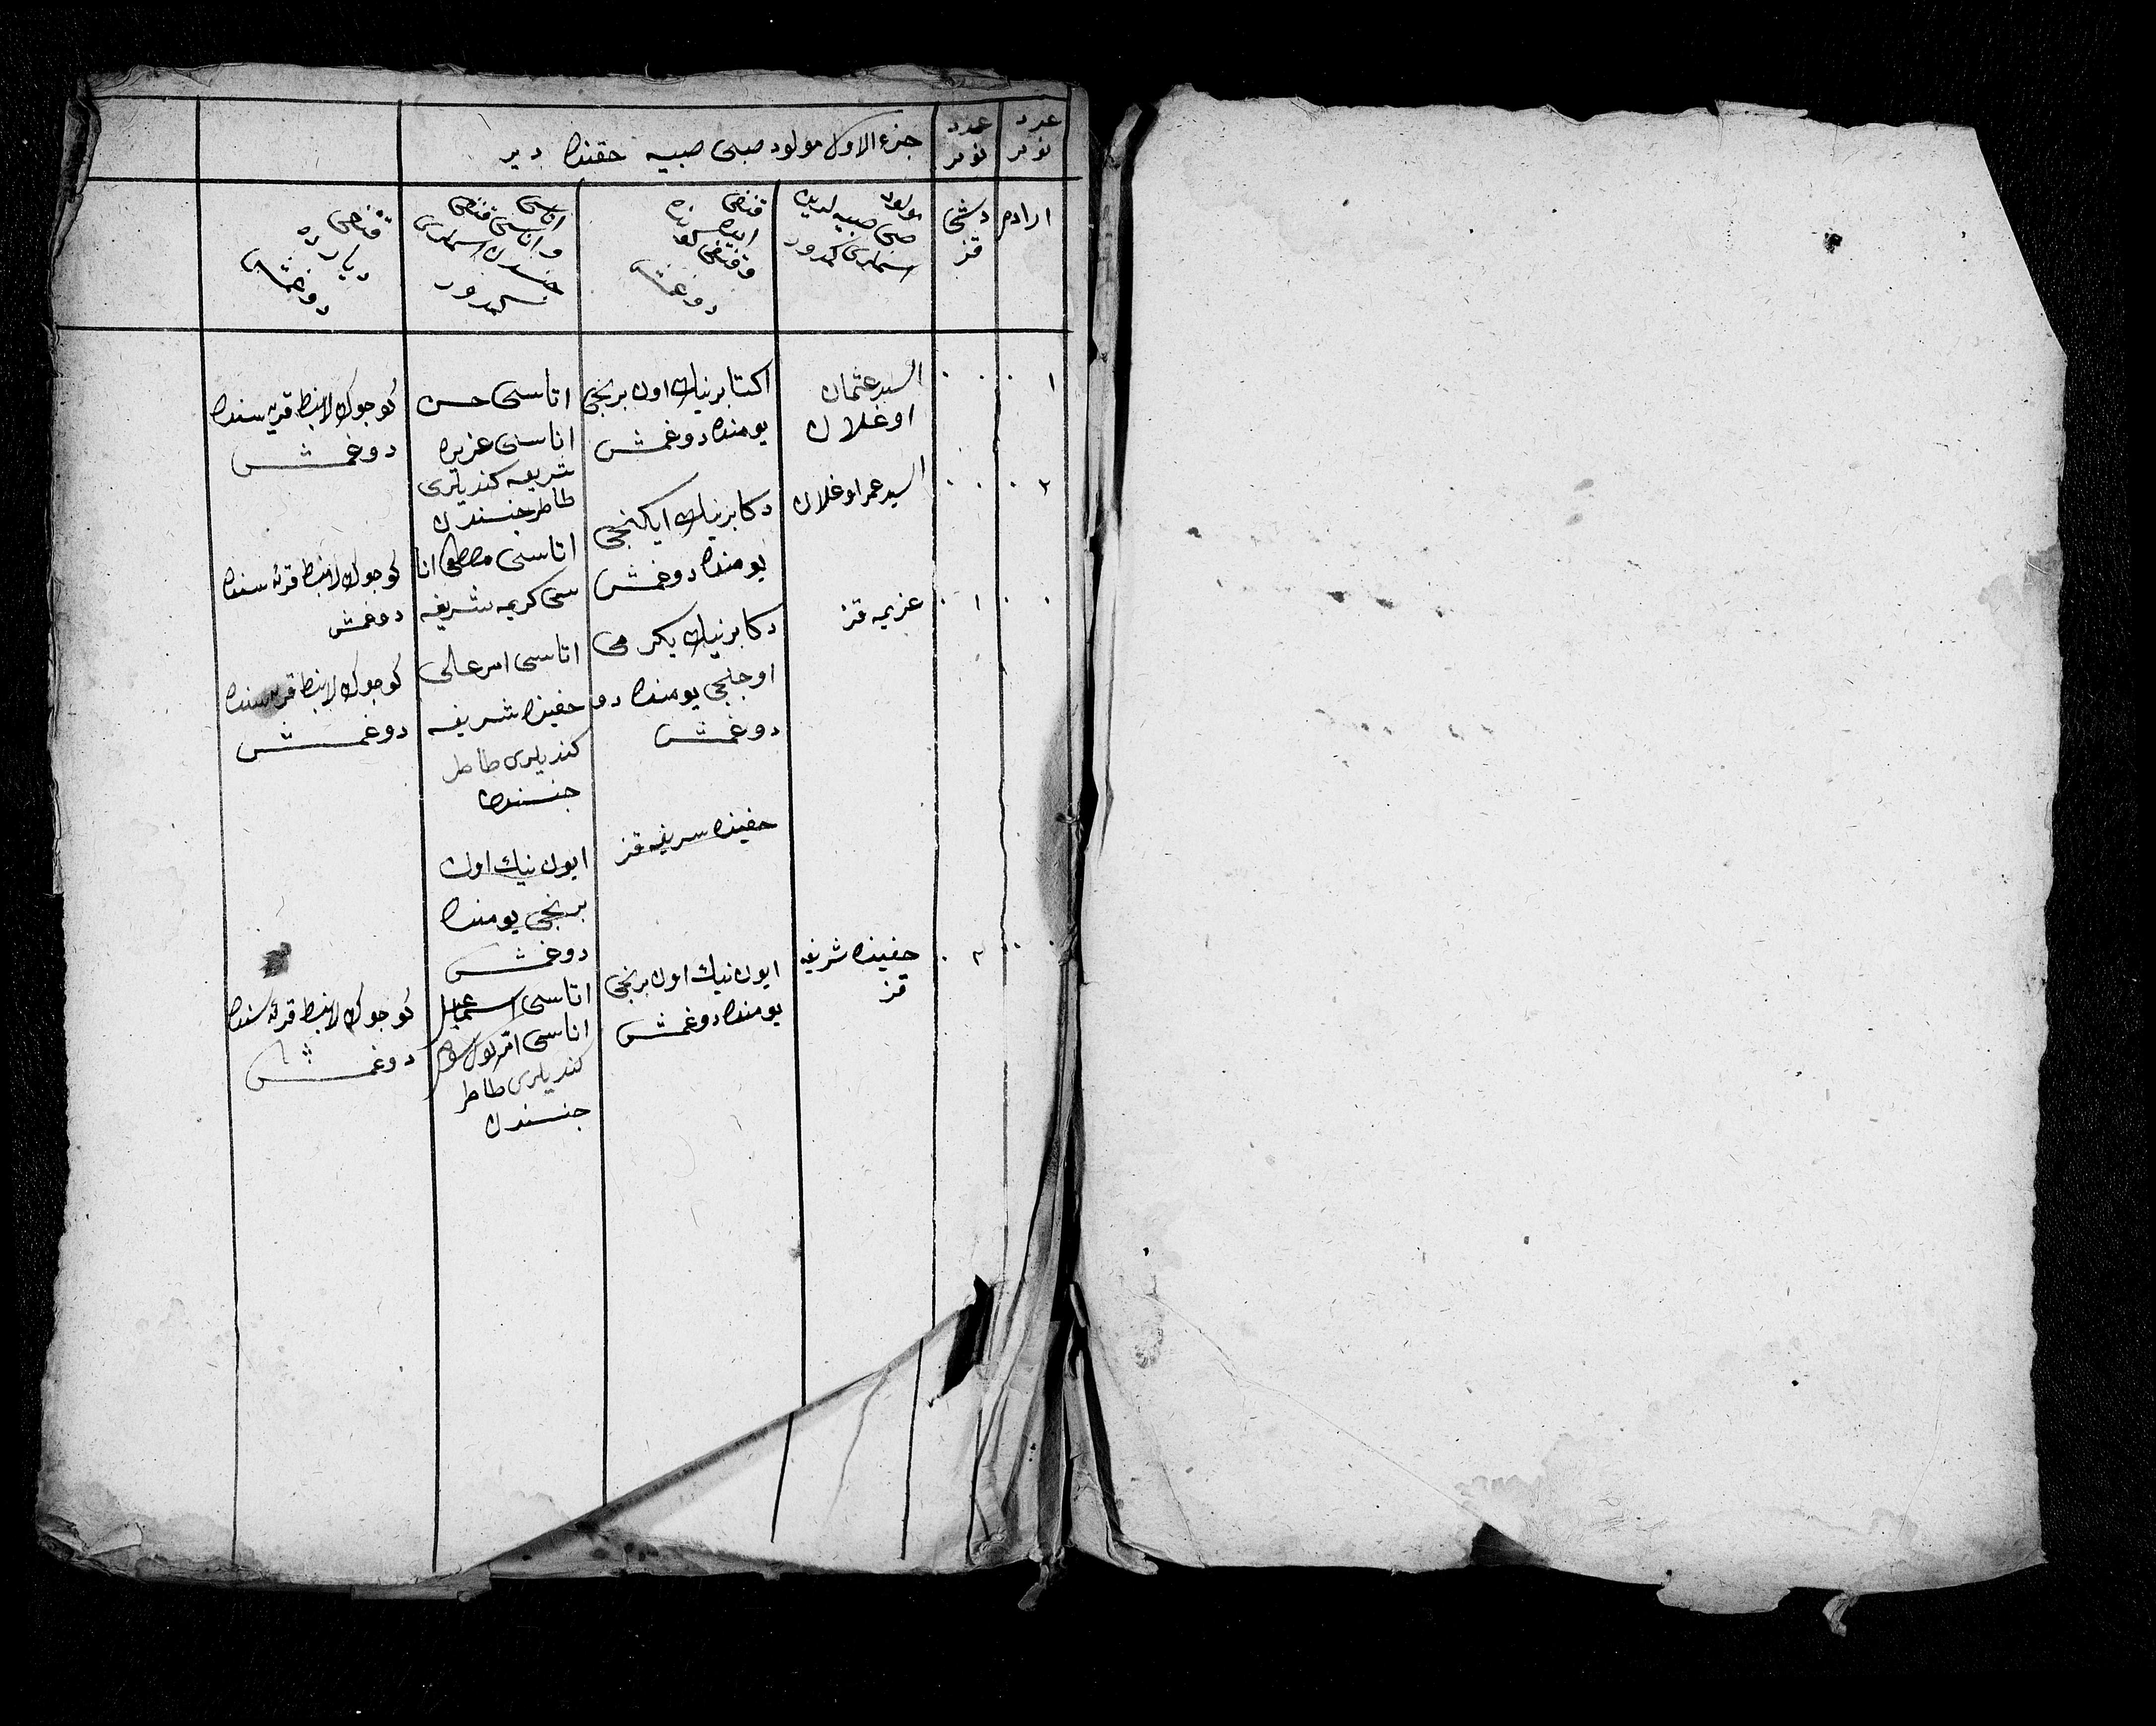 عدد
نومر
عدد
نومر
جزء الاول مولود صبی صبیه حقنده دیر
ارادم
دشی
قز
مولود
صبی صبیه لرینك
اسملری كمدور
قنغی
ایده
وقنغی كونده
دوغمش
اتاسی
واناسی قنغی
جنسدن اسملری
كمدور
قنغی
دیارده
دوغمش
١
السید عثمان
اوغلان
اكتابرنیك اون برنجی
یومنده دوغمش
اتاسی حسن
اناسی عزیزه
شریفه كندیلری
طاطر جنسندن
كوجوك لانبط قریه سنده
دوغمش
٢
السید عمر اوغلان
دكابرنیك ایكنجی
یومنده دوغمش
اتاسی مصطفی انا
سی كریمه شریفه
كوجوك لانبط قریه سنده
دوغمش
١
عزیمه قز
دكابرنیك یكرمی
اوجلجی یومنده دو
دوغمش
اتاسی امرعالی
حفیزه شریفه
كندیلری طاطر
جنسنده
كوجوك لانبط قریه سنده
دوغمش
حفیزه شریفه قز
ایون نیك اون
برنجی یومنده
دوغمش
٢
حفیزه شریفه
قز
ایون نیك اون برنجی
یومنده دوغمش
اتاسی اسماعیل
اناسی
كندیلری طاطر
جنسندن
كوجوك لانبط قریه سنده
دوغمش